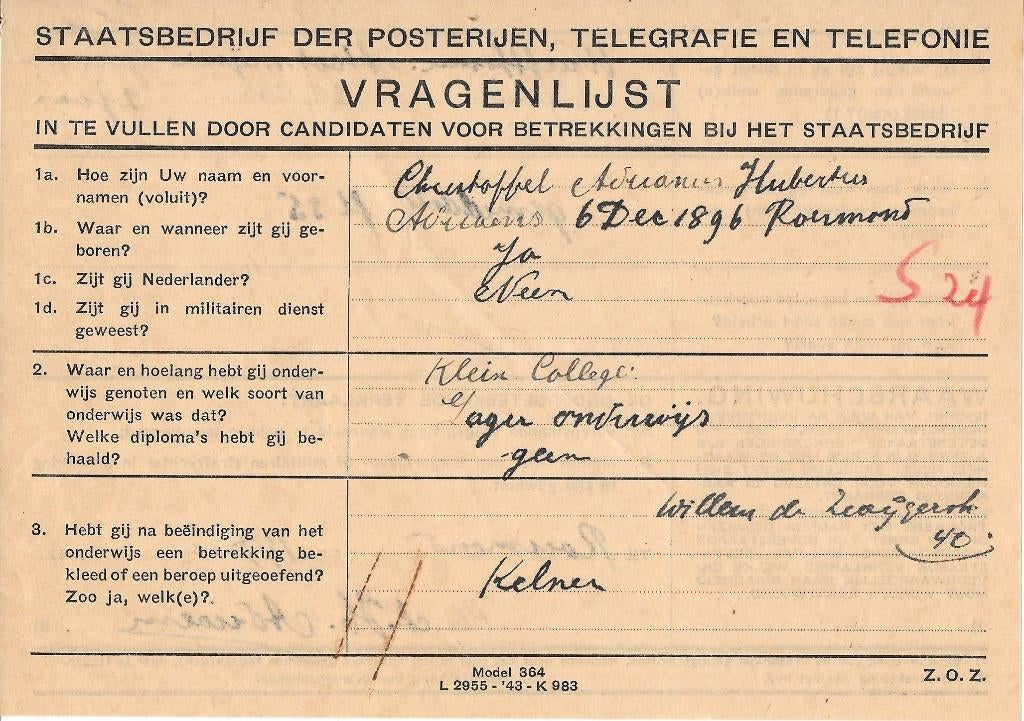 STAATSBEDRIJF DER POSTERIJEN, TELEGRAFIE EN TELEFONIE
VRAGENLIJST
IN TE VULLEN DOOR CANDIDATEN VOOR BETREKKINGEN BIJ HET STAATSBEDRIJF
1a. Hoe zijn Uw naam en voor-
namen (voluit)?
Christoffel Adrianus Hubertus
Adriaens 6 Dec 1896 Roermond
1b. Waar en wanneer zijt gij ge-
boren?
1c. Zijt gij Nederlander?
Ja
1d. Zijt gij in militairen dienst
geweest?
Neen
S 24
2. Waar en hoelang hebt gij onder-
wijs genoten en welk soort van
onderwijs was dat?
Welke diploma's hebt gij be-
haald?
Klein College.
Lager onderwijs
geen
3. Hebt gij na beëindiging van het
onderwijs een betrekking be-
kleed of een beroep uitgeoefend?
Zoo ja, welk(e)?
Willem de
40
Kelner
Model 364
L 2955 - '43 - K 983
Z. O. Z.